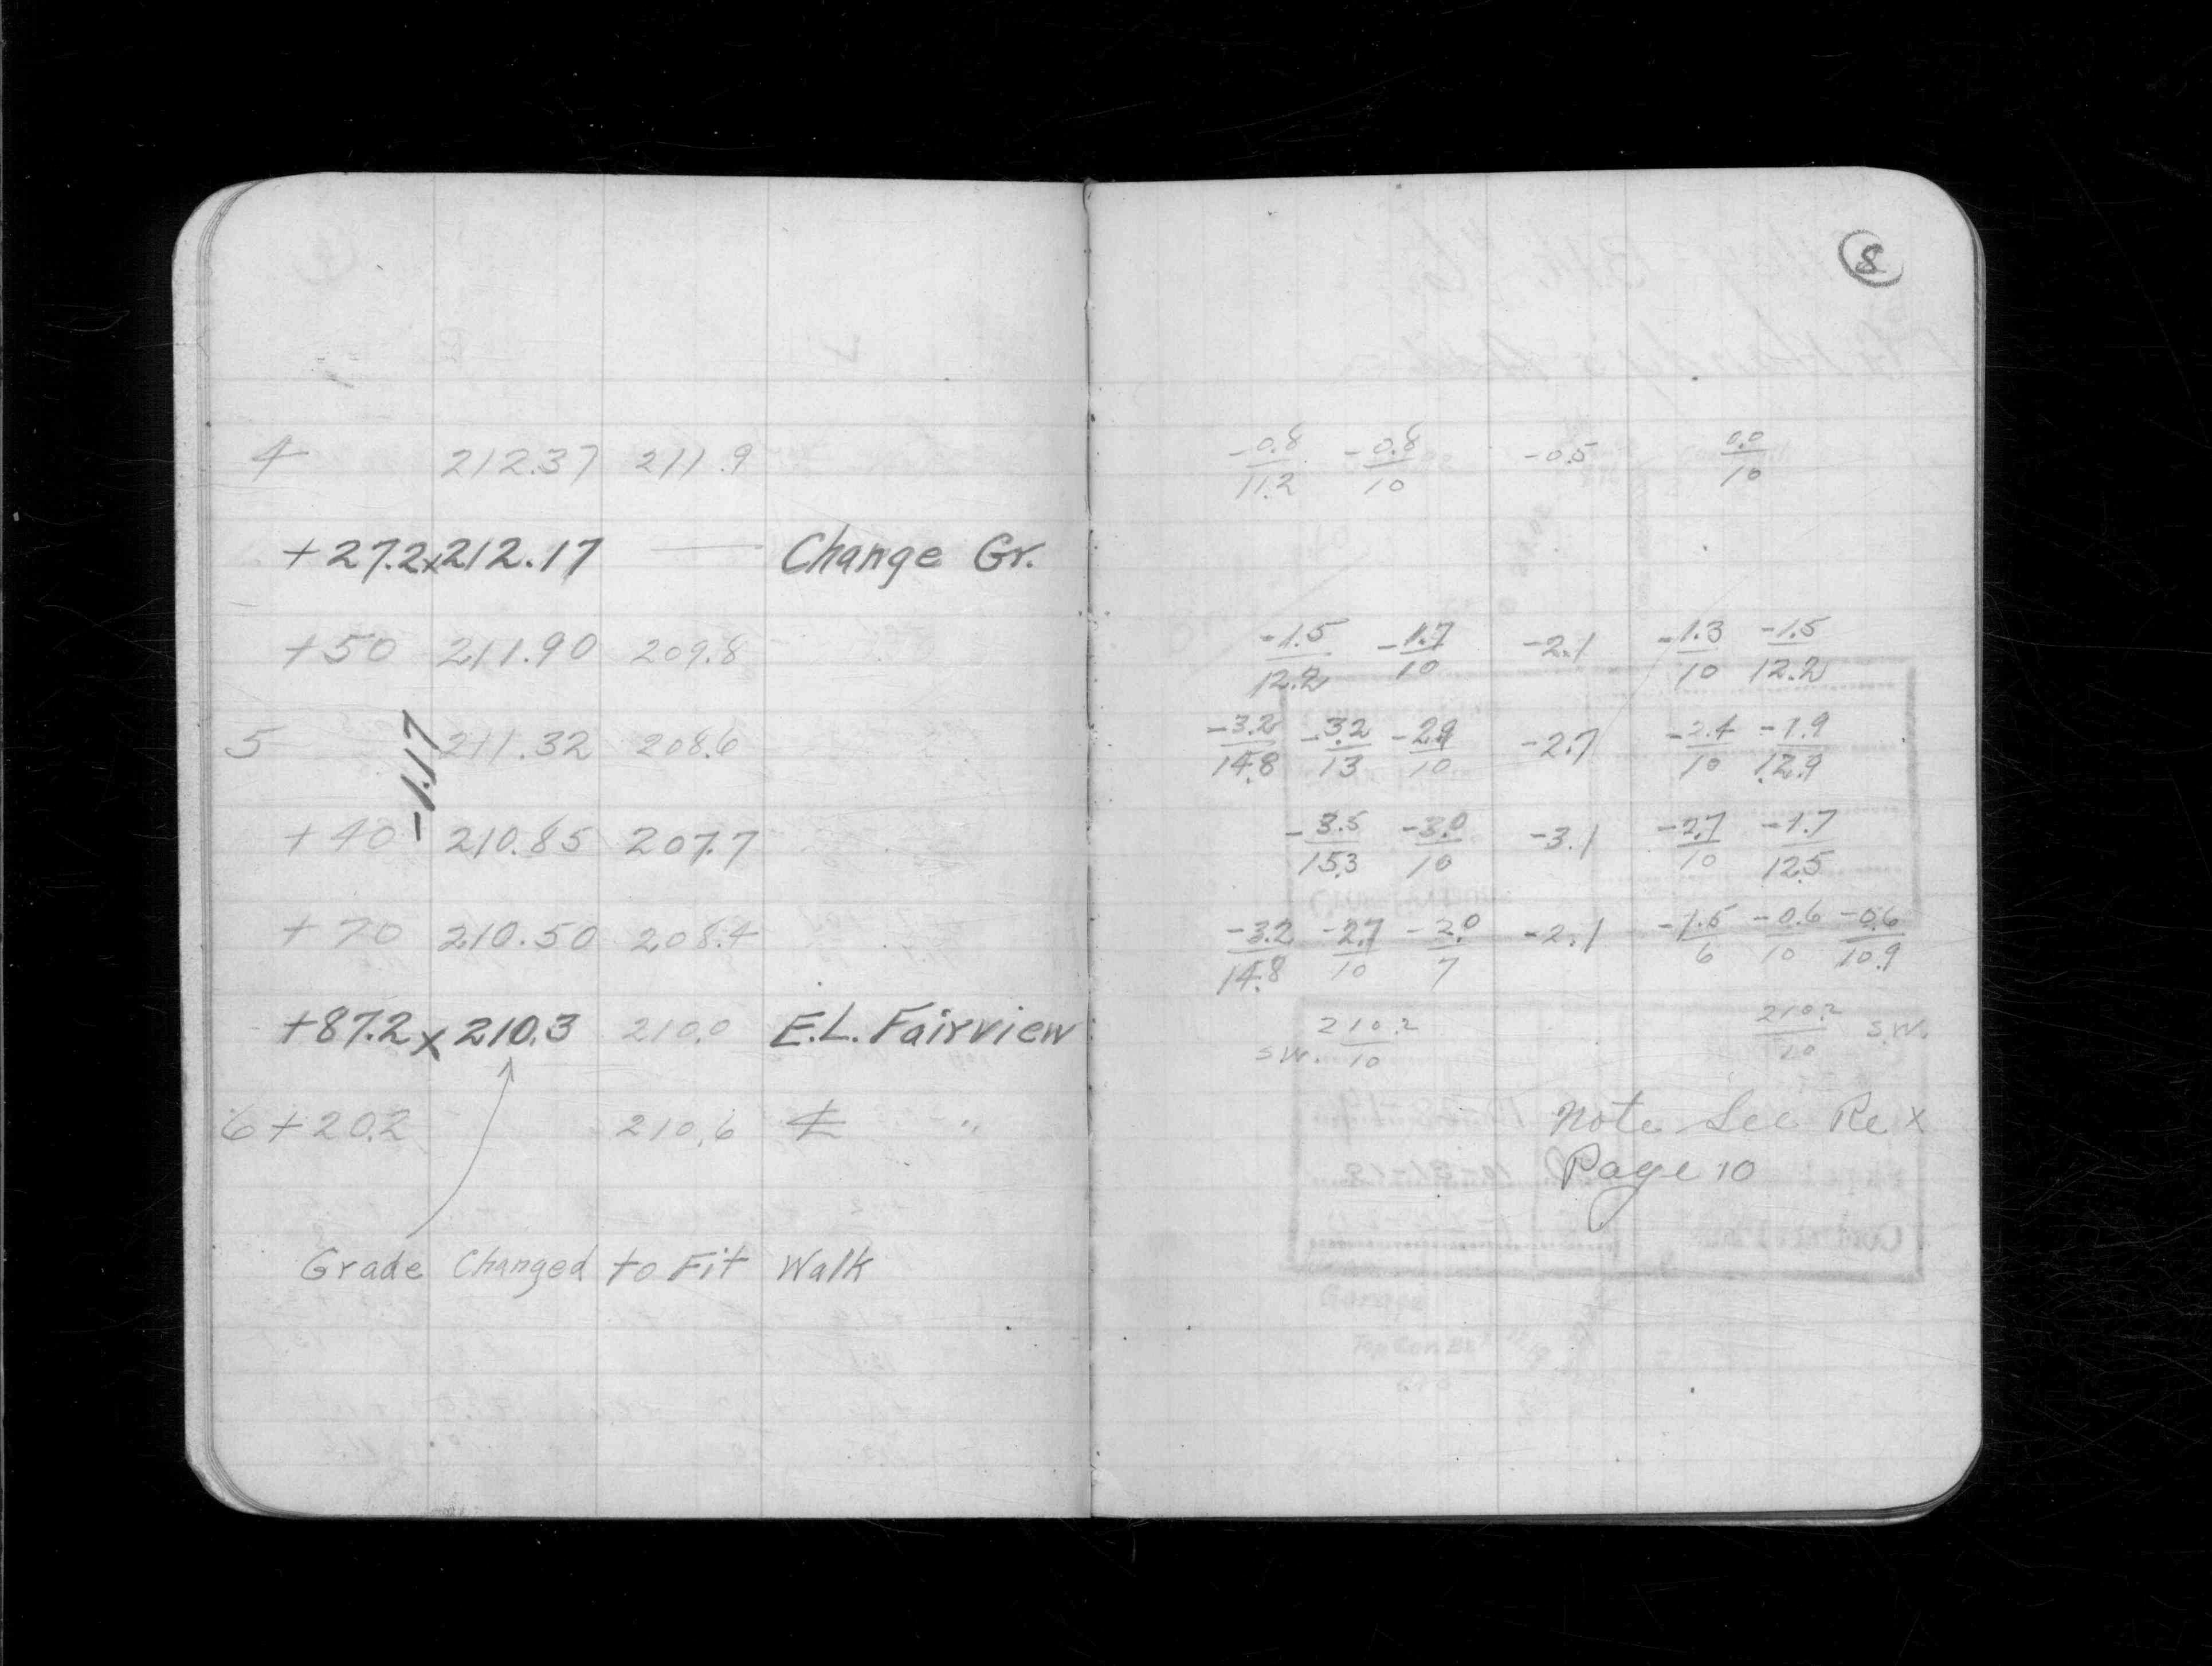 8
4 212.37 211.9
+27.2 x 212.17 — Change Gr.
+50 211.90 209.8
5 211.32 208.6
-1.17
+40 210.85 207.7
+70 210.50 208.4
+87.2 x 210.3 210.0 E.L. Fairview
6+20.2 210.6 ℄ "
Grade Changed to Fit Walk
-0.8/11.2 -0.8/10 -0.5 0.0/10
-1.5/12.2 -1.7/10 -2.1 -1.3/10 -1.5/12.2
-3.2/14.8 -3.2/13 -2.9/10 -2.7 -2.4/10 -1.9/12.9
-3.5/15.3 -3.0/10 -3.1 -2.7/10 -1.7/12.5
-3.2/14.8 -2.7/10 -2.0/7 -2.1 -1.5/6 -0.6/10 -0.6/10.9
S.W. 210.2/10 210.2/10 S.W.
Note See Re X
Page 10